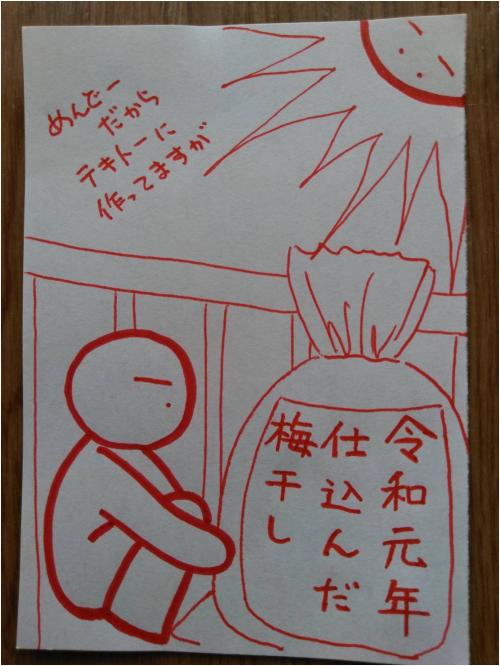 めんどー
だから
テキトーに
作ってますが
令和元年
仕込んだ
梅干し